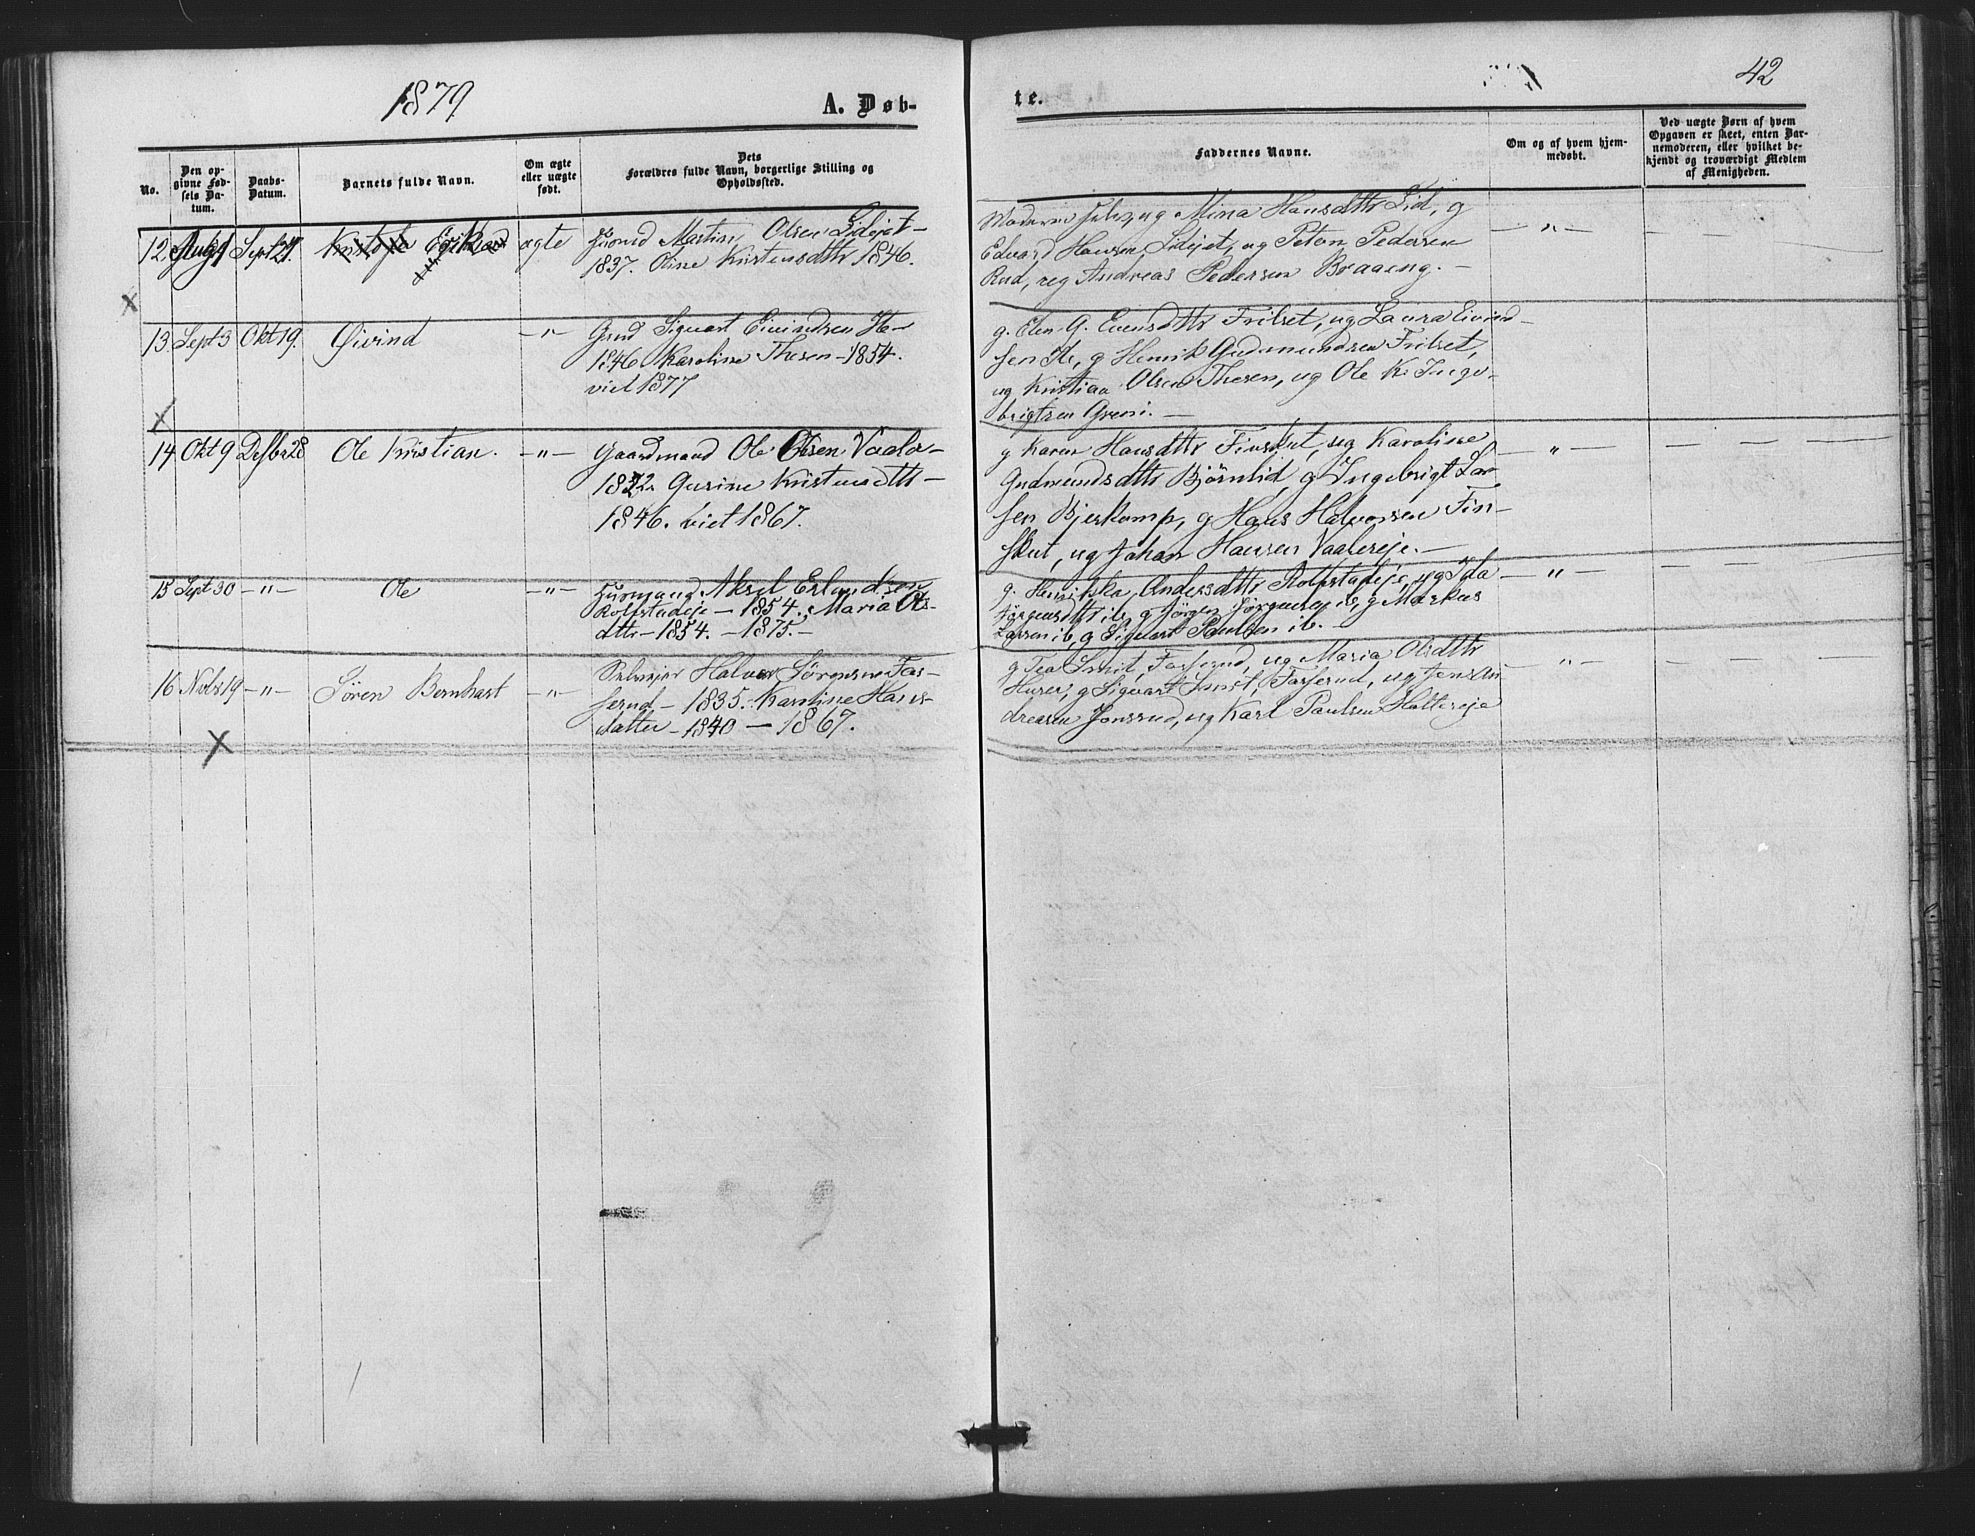 1879
A. Døb-
te.
42
No.
Den op-
givne Fød-
sels Da-
tum.
Daabs-
Datum.
Barnets fulde Navn.
Om ægte
eller uægte
født.
Dets
Forældres fulde Navn, borgerlige Stilling og
Opholdssted.
Faddernes Navne.
Om og af hvem hjem-
medøbt.
Ved uægte Børn af hvem
Opgaven er skeet, enten Bar-
nemoderen, eller hvilket be-
kjendt og troværdigt Medlem
af Menigheden.
12 Sept 21. ægte Martin Olsen Lidejet-
1837. Oline Kristensdttr 1846.
Moderen selv, ug Mina Hansdttr Lid, g
Edvard Hansen Lidejet, ug Peton Pedersen
Rud, ug Andreas Pedersen Braaeng. - - " -
13 Sept 3 Okt 19. Øivind - " - Sigvart Eivindsen
1846 Karoline Thesen - 1854.
viet 1877
g. Elen G. Evensdttr Frilset, ug Laura Eivind-
sen, g Henrik Gudmundsen Frilset,
ug Kristian Olsen Thesen, ug Ole K. Inge-
brigtsen Greni. -
14 Okt 9 Desbr 28 Ole Kristian. - " - Gaardmand Ole Olsen Vaaler-
1842 Gurine Kristensdttr -
1846. viet 1867.
g Karen Hansdttr Finskut, ug Karoline
Gudmundsdttr Bjørnlid, g Ingebrigt Lar-
sen Bjerkomp, g Hans Halvorsen Fin-
skut, ug Johan Hansen Vaalereje. - - " -
15 Sept 30 - " - Ole - " - Husmand Aksel Erlandsen
Rolfstadeje - 1854. Maria Ols-
dttr - 1854. - 1875. -
g. Henrikka Andersdttr Rolfstadeje, ug Ida
Jørgensdttr ib, g Jørgen Jørgensen ib, g Markus
Larsen ib, g Sigvart Paulsen ib. - " -
16 Novbr 19 - " - Søren Bernhart - " - Selvejer Halvor Sørensen Fos-
serud - 1835. Karoline Hans-
datter - 1840 - 1867.
g Tea Smit, Fosserud, ug Maria Olsdttr
Hurer, g Sigvart Smit, Fosserud, ug Jens An-
dreasen Jonsrud, ug Karl Paulsen Holtereje - " -